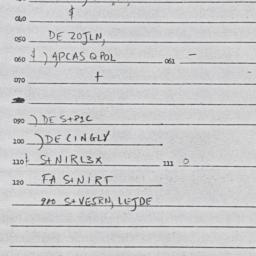 040 $
050 DE ZOJLN,
060 $ ) APCAS Q POL 061 —
070 +
090 ) DE S+P1C
100 ) DE CINGLY
110 S+NIRL3X 111 0
120 FA S+NIRT
900 S+VESRN, LEJDE